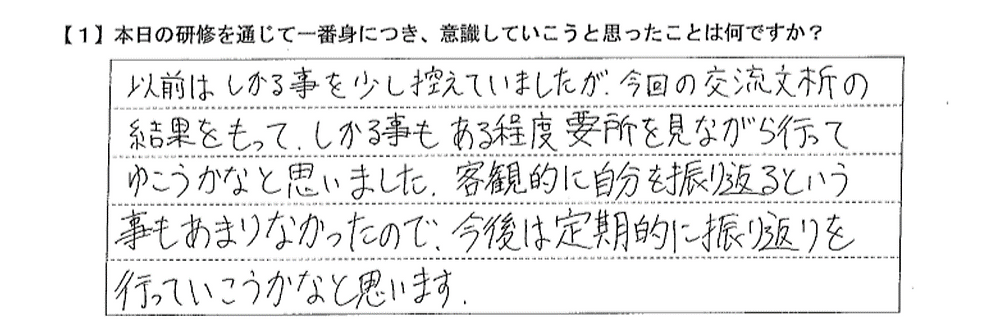 【1】本日の研修を通じて一番身につき、意識していこうと思ったことは何ですか？
以前はしかる事を少し控えていましたが、今回の交流文析の
結果をもって、しかる事もある程度要所を見ながら行って
ゆこうかなと思いました。客観的に自分を振り返るという
事もあまりなかったので、今後は定期的に振り返りを
行っていこうかなと思います。